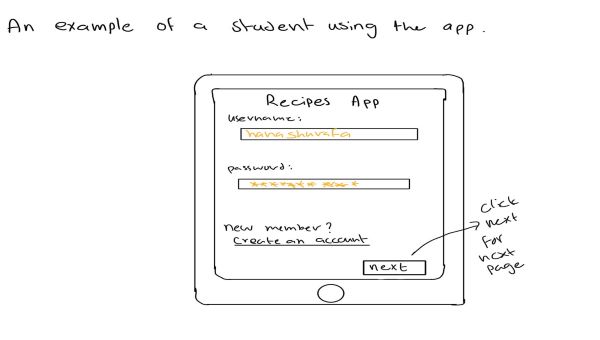 An example of a student using the app.
Recipes App
username:
hanashurata
password:
********** ****
new member?
Create an account
next
click
next
for
next
page